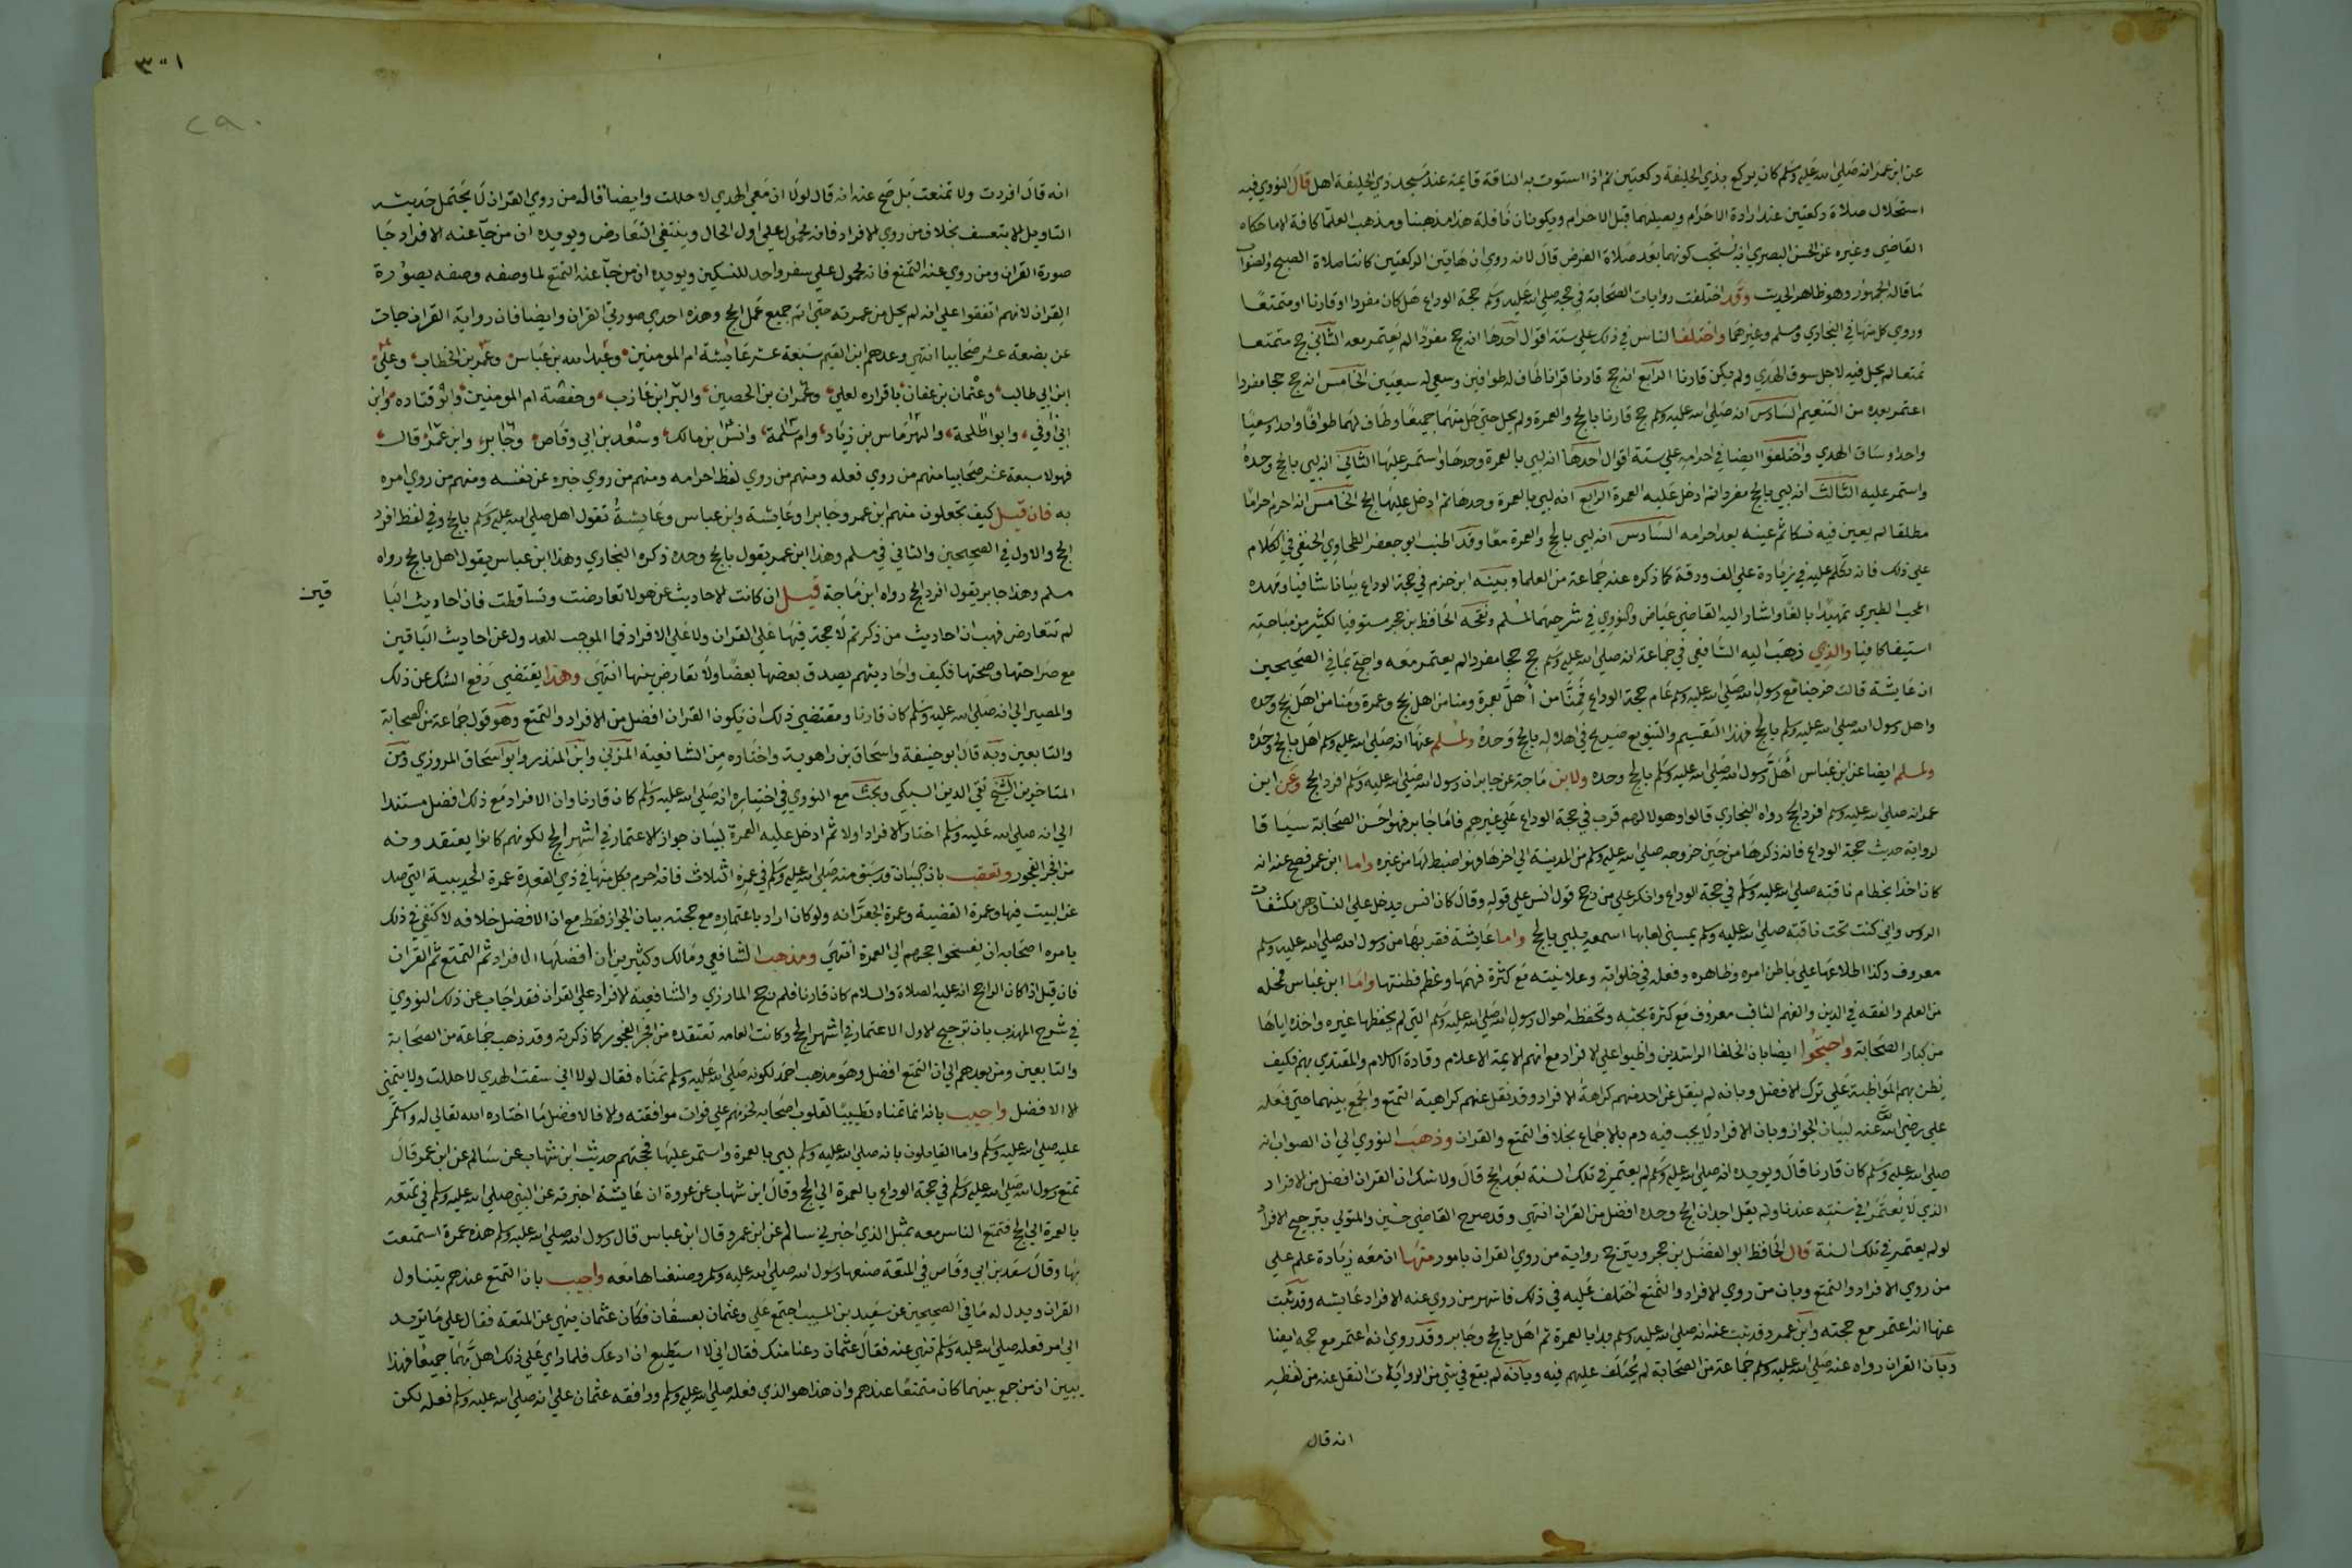 عن ابن عمر انه صلي الله عليه وسلم كان يركع بذي الحليفة ركعتين ثم اذا استوت به الناقة قايمة عند مسجد ذي الحليفة اهل قال النووي فيه
استحلال صلاة ركعتين عند ارادة الاحرام ويصليهما قبل الاحرام ويكونان نافلة هذا مذهبنا ومذهب العلما كافة الا ما حكاه
القاضي وغيره عن الحسن البصري انه يستحب كونهما بعد صلاة الفرض قال لانه روي ان هاتين الركعتين كانتا صلاة الصبح والصواب
ما قاله الجمهور وهو ظاهر الحديث وقد اختلفت روايات الصحابة في حجه صلي الله عليه وسلم حجة الوداع هل كان مفردا او قارنا او متمتعا
وروي كل منها في البخاري ومسلم وغيرهما واختلف الناس في ذلك علي ستة اقوال احدها انه حج مفردا لم يعتمر معه الثاني حج متمتعا
تمتعا لم يحل فيه لاجل سوق الهدي ولم يكن قارنا الرابع انه حج قارنا قرانا طاف له طوافين وسعي له سعيين الخامس انه حج حجا مفردا
اعتمر بعده من التنعيم السادس انه صلي الله عليه وسلم حج قارنا بالحج والعمرة ولم يحل حتي حل منهما جميعا وطاف لهما طوافا واحدا وسعيا
واحدا وساق الهدي واختلفوا ايضا في احرامه علي ستة اقوال احدها انه لبي بالعمرة وحدها واستمر عليها الثاني انه لبي بالحج وحده
واستمر عليه الثالث انه لبي بالحج مفردا ثم ادخل عليه العمرة الرابع انه لبي بالعمرة وحدها ثم ادخل عليها الحج الخامس انه احرم احراما
مطلقا لم يعين فيه نسكا ثم عينه بعد احرامه السادس انه لبي بالحج والعمرة معا وقد اطنب ابو جعفر الطحاوي الحنفي في الكلام
علي ذلك فانه تكلم عليه في زيادة علي الف ورقة كما ذكره عنه جماعة من العلما وبينه ابن حزم في حجة الوداع بيانا شافيا ومهده
المحب الطبري تمهيدا بالغا واشار اليه القاضي عياض والنووي في شرحهما لمسلم ونقحه الحافظ بن حجر مستوفيا لكثير من مباحثه
استيفا كافيا والذي ذهب اليه الشافعي في جماعة انه صلي الله عليه وسلم حج حجا مفردا لم يعتمر معه واحتج بما في الصحيحين
ان عايشة قالت خرجنا مع رسول الله صلي الله عليه وسلم عام حجة الوداع فمنا من أهل بعمرة ومنا من اهل بحج وعمرة ومنا من اهل بحج وحده
واهل رسول الله صلي الله عليه وسلم بالحج فهذا التقسيم والتنويع صريح في اهلاله بالحج وحده ولمسلم عنها انه صلي الله عليه وسلم اهل بالحج وحده
ولمسلم ايضا عن ابن عباس أهل رسول الله صلي الله عليه وسلم بالحج وحده ولابن ماجة عن جابر ان رسول الله صلي الله عليه وسلم افرد الحج وعن ابن
عمر انه صلي الله عليه وسلم افرد الحج رواه البخاري قالوا وهولا لهم قرب في حجة الوداع علي غيرهم فاما جابر فهو احسن الصحابة سياقا
لرواية حديث حجة الوداع فانه ذكرها من حين خروجه صلي الله عليه وسلم من المدينة الي اخرها فهو اضبط لها من غيره واما ابن عمر فصح عنه انه
كان اخذا بخطام ناقته صلي الله عليه وسلم في حجة الوداع وانكر علي من رجح قول انس علي قوله وقال كان انس يدخل علي النسا وهن مكشفات
الروس واني كنت تحت ناقته صلي الله عليه وسلم يمسني لعابها اسمعه يلبي بالحج واما عايشة فقربها من رسول الله صلي الله عليه وسلم
معروف وكذا اطلاعها علي باطن امره وظاهره وفعله في خلواته وعلانيته مع كثرة فهمها وعظم فطنتها واما ابن عباس فمحله
من العلم والفقه في الدين والفهم الثاقب معروف مع كثرة بحثه وتحفظه احوال رسول الله صلي الله عليه وسلم التي لم يحفظها غيره واخذه اياها
من كبار الصحابة واحتجوا ايضا بان الخلفا الراشدين واظبوا علي الافراد مع انهم الايمة الاعلام وقادة الاسلام والمقتدي بهم فكيف
يظن بهم المواظبة علي ترك الافضل وبانه لم ينقل عن احد منهم كراهة الافراد وقد نقل عنهم كراهية التمتع والجمع بينهما حتي فعله
علي رضي الله تعالى عنه لبيان الجواز وبان الافراد لا يجب فيه دم بالاجماع بخلاف التمتع والقران وذهب النووي الي ان الصواب انه
صلي الله عليه وسلم كان قارنا قال ويويده انه صلي الله عليه وسلم لم يعتمر في تلك السنة بعد الحج قال ولا شك ان القران افضل من الافراد
الذي لا يعتمر في سنته عندنا ولم يقل احد ان الحج وحده افضل من القران انتهي وقد صرح القاضي حسين والمتولي بترجيح الافراد
لو لم يعتمر في تلك السنة قال الحافظ ابو الفضل بن حجر ويترجح رواية من روي القران بامور منها ان معه زيادة علم علي
من روي الافراد والتمتع وبان من روي الافراد والتمتع اختلف عليه في ذلك فاشهر من روي عنه الافراد عايشه وقد ثبت
عنها انه اعتمر مع حجته وابن عمر وقد ثبت عنه انه صلي الله عليه وسلم بدا بالعمرة ثم اهل بالحج وجابر وقد روي انه اعتمر مع حجه ايضا
وبان القران رواه عنه صلي الله عليه وسلم جماعة من الصحابة لم يختلف عليهم فيه وبانه لم يقع في شي من الروايات النقل عنه من لفظه
انه قال
٣٠١
٢٩٠
انه قال افردت ولا تمتعت بل صح عنه انه قال لولا ان معي الهدي لاحللت وايضا فانه من روي القران لا يحتمل حديثه
التاويل الا بتعسف بخلاف من روي الافراد فانه محمول علي اول الحال وينتفي التعارض ويويده ان من جا عنه الافراد جا
صورة القران ومن روي عنه التمتع فانه محمول علي سفر واحد للنسكين ويويده ان من جا عنه التمتع لما وصفه وصفه بصورة
القران لانهم اتفقوا علي انه لم يحل من عمرته حتي اتم جميع عمل الحج وهذه احدي صورتي القران وايضا فان رواية القران جات
عن بضعة عشر صحابيا انتهي وعدهم ابن القيم سبعة عشر عايشة ام المومنين وعبد الله بن عباس وعمر بن الخطاب وعلي
ابن ابي طالب وعثمان بن عفان باقراره لعلي وعمران بن الحصين والبرا بن عازب وحفصة ام المومنين وابو قتاده وابن
ابي اوفي وابو طلحة والهرماس بن زياد وام سلمة وانس بن مالك وسعد بن ابي وقاص وجابر وابن عمر قال
فهولا سبعة عشر صحابيا منهم من روي فعله ومنهم من روي لفظ احرامه ومنهم من روي خبره عن نفسه ومنهم من روي امره
به فان قيل كيف تجعلون منهم ابن عمر وجابرا وعايشة وابن عباس وعايشة تقول اهل صلي الله عليه وسلم بالحج وفي لفظ افرد
الحج والاول في الصحيحين والثاني في مسلم وهذا ابن عمر يقول بالحج وحده ذكره البخاري وهذا ابن عباس يقول اهل بالحج رواه
مسلم وهذا جابر يقول افرد الحج رواه ابن ماجة قيل ان كانت الاحاديث عن هولا تعارضت وتساقطت فان احاديث البا
قين
لم تتعارض فهب ان احاديث من ذكرتم لا حجة فيها علي القران ولا علي الافراد فما الموجب للعدول عن احاديث الباقين
مع صراحتها وصحتها فكيف واحاديثهم يصدق بعضها بعضا ولا تعارض بينها انتهي وهذا يقتضي رفع الشك عن ذلك
والمصير الي انه صلي الله عليه وسلم كان قارنا ومقتضي ذلك ان يكون القران افضل من الافراد والتمتع وهو قول جماعة من الصحابة
والتابعين وبه قال ابو حنيفة واسحاق بن راهوية واختاره من الشافعية المزني وابن المنذر وابو اسحاق المروزي ومن
المتاخرين الشيخ تقي الدين السبكي وبحث مع النووي في اختياره انه صلي الله عليه وسلم كان قارنا وان الافراد مع ذلك افضل مستندا
الي انه صلي الله عليه وسلم اختار الافراد اولا ثم ادخل عليه العمرة لبيان جواز الاعتمار في اشهر الحج لكونهم كانوا يعتقدونه
من افجر الفجور وتعقب بان البيان قد سبق منه صلي الله عليه وسلم في عمره الثلاث فانه احرم بكل منها في ذي القعدة عمرة الحديبية التي صد
عن البيت فيها وعمرة القضية وعمرة الجعرانه ولو كان اراد باعتماره مع حجته بيان الجواز فقط مع ان الافضل خلافه لاكتفي في ذلك
بامره اصحابه ان يفسخوا حجهم الي العمرة انتهي ومذهب الشافعي ومالك وكثيرين ان افضلها الافراد ثم التمتع ثم القران
فان قيل اذا كان الراجح انه عليه الصلاة والسلام كان قارنا فلم رجح المازري والشافعية الافراد علي القران فقد اجاب عن ذلك النووي
في شرح المهذب بان ترجيح الاول الاعتمار في اشهر الحج وكانت العامه تعتقده من افجر الفجور كما ذكرته وقد ذهب جماعة من الصحابة
والتابعين ومن بعدهم الي ان التمتع افضل وهو مذهب احمد لكونه صلي الله عليه وسلم تمناه فقال لولا اني سقت الهدي لاحللت ولا يتمني
الا الافضل واجيب بانه انما تمناه تطييبا لقلوب اصحابه لحزنهم علي فوات موافقته والا فالافضل ما اختاره الله تعالي له واستمر
عليه صلي الله عليه وسلم واما القايلون بانه صلي الله عليه وسلم لبي بالعمرة واستمر عليها فحجتهم حديث ابن شهاب عن سالم عن ابن عمر قال
تمتع رسول الله صلي الله عليه وسلم في حجة الوداع بالعمرة الي الحج وقال ابن شهاب عن عروة ان عايشة اخبرته عن النبي صلي الله عليه وسلم في تمتعه
بالعمرة الي الحج فتمتع الناس معه بمثل الذي اخبرني سالم عن ابن عمر وقال ابن عباس قال رسول الله صلي الله عليه وسلم هذه عمرة استمتعت
بها وقال سعد بن ابي وقاص في المتعة صنعها رسول الله صلي الله عليه وسلم وصنعناها معه واجيب بان التمتع عندهم يتناول
القران ويدل له ما في الصحيحين عن سعيد بن المسيب اجتمع علي وعثمان بعسفان فكان عثمان ينهي عن المتعة فقال علي ما تريد
الي امر فعله صلي الله عليه وسلم تنهي عنه فقال عثمان دعنا منك فقال اني لا استطيع ان ادعك فلما راي علي ذلك اهل بهما جميعا فهذا
يبين ان من جمع بينهما كان متمتعا عندهم وان هذا هو الذي فعله صلي الله عليه وسلم ووافقه عثمان علي انه صلي الله عليه وسلم فعله لكن